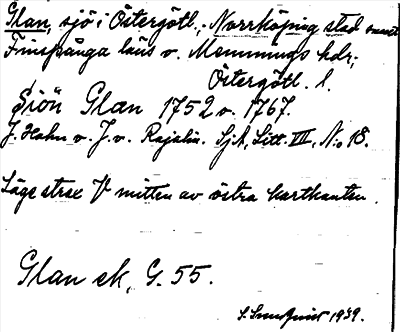 Glan, sjö i Östergötl., Norrköping stad samt
Finspånga läns o. Memmings hdr,
Östergötl. l.
Siön Glan 1752 o. 1767.
J. Hahn o. J. v. Rajalin. SjA, Litt. VII, No 18.
Läge strax V mitten av östra kartkanten.
Glan ek, G. 55.
S. 1939.